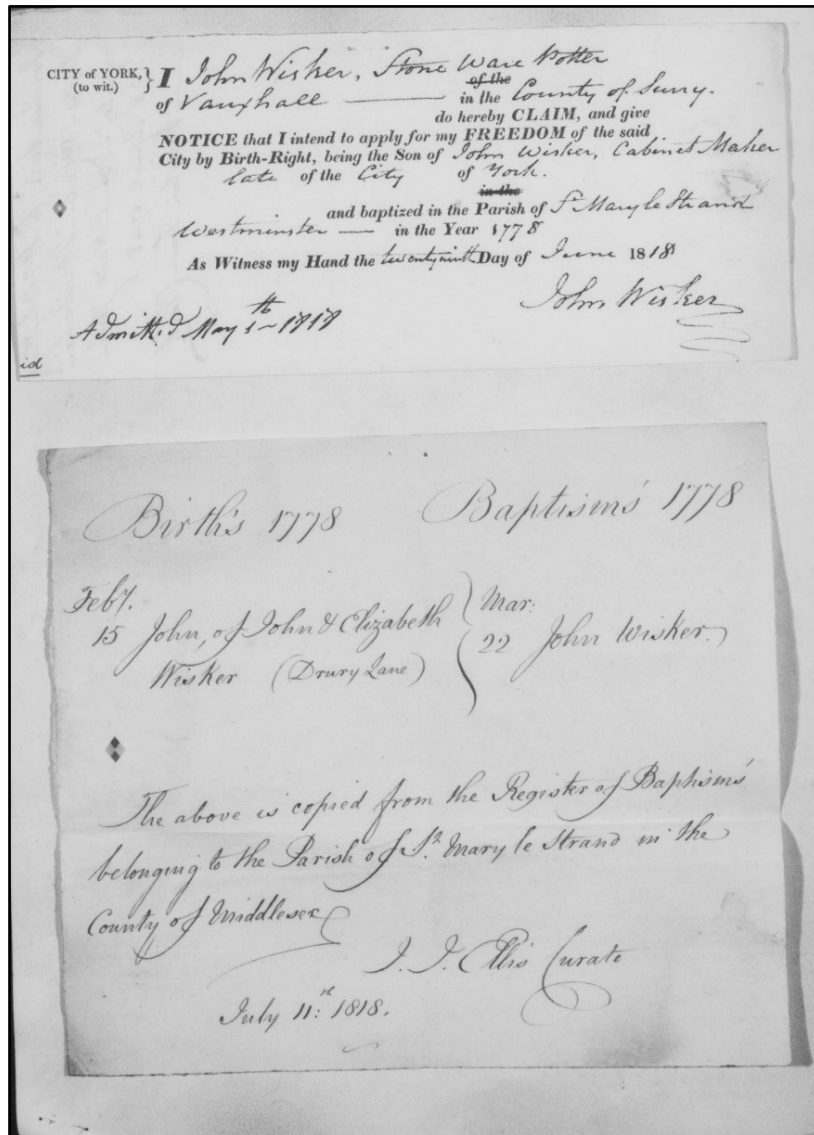 CITY of YORK, } I John Wisker, Stone Ware Potter
(to wit.)
of the
of Vauxhall — in the County of Surry.
do hereby CLAIM, and give
NOTICE that I intend to apply for my FREEDOM of the said
City by Birth-Right, being the Son of John Wisker, Cabinet Maker
late of the City of York.
in the
and baptized in the Parish of St Mary le Strand
Westminster — in the Year 1778
As Witness my Hand the twenty ninth Day of June 1818
John Wisker
Admitt.d May 1th 1818
id
Birth's 1778 Baptism's 1778
Feby. Mar:
15 John, of John & Elizabeth } 22 John Wisker.
Wisker (Drury Lane)
The above is copied from the Register of Baptism's
belonging to the Parish of St. Mary le Strand in the
County of Middlesex
J. J. Ellis Curate
July 11th: 1818.